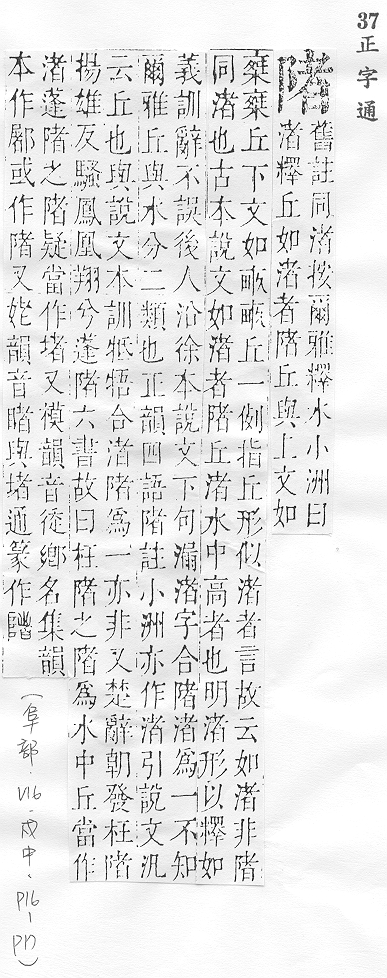 37 正字通
陼
舊註同渚按爾雅釋水小洲曰
渚釋丘如渚者陼丘與上文如
椉椉丘下文如畝畝丘一例指丘形似渚者言故云如渚非陼
同渚也古本說文如渚者陼丘渚水中高者也明渚形以釋如
義訓辭不誤後人沿徐本說文下句漏渚字合陼渚爲一不知
爾雅丘與水分二類也正韻四語陼註小洲亦作渚引說文汎
云丘也與說文本訓牴牾合渚陼爲一亦非又楚辭朝發枉陼
揚雄反騷鳳凰翔兮蓬陼六書故曰枉陼之陼爲水中丘當作
渚蓬陼之陼疑當作堵又模韻音徒鄉名集韻
本作鄌或作陼又姥韻音睹與堵通篆作陼
(阜部.V16.戌中.P16-P17)